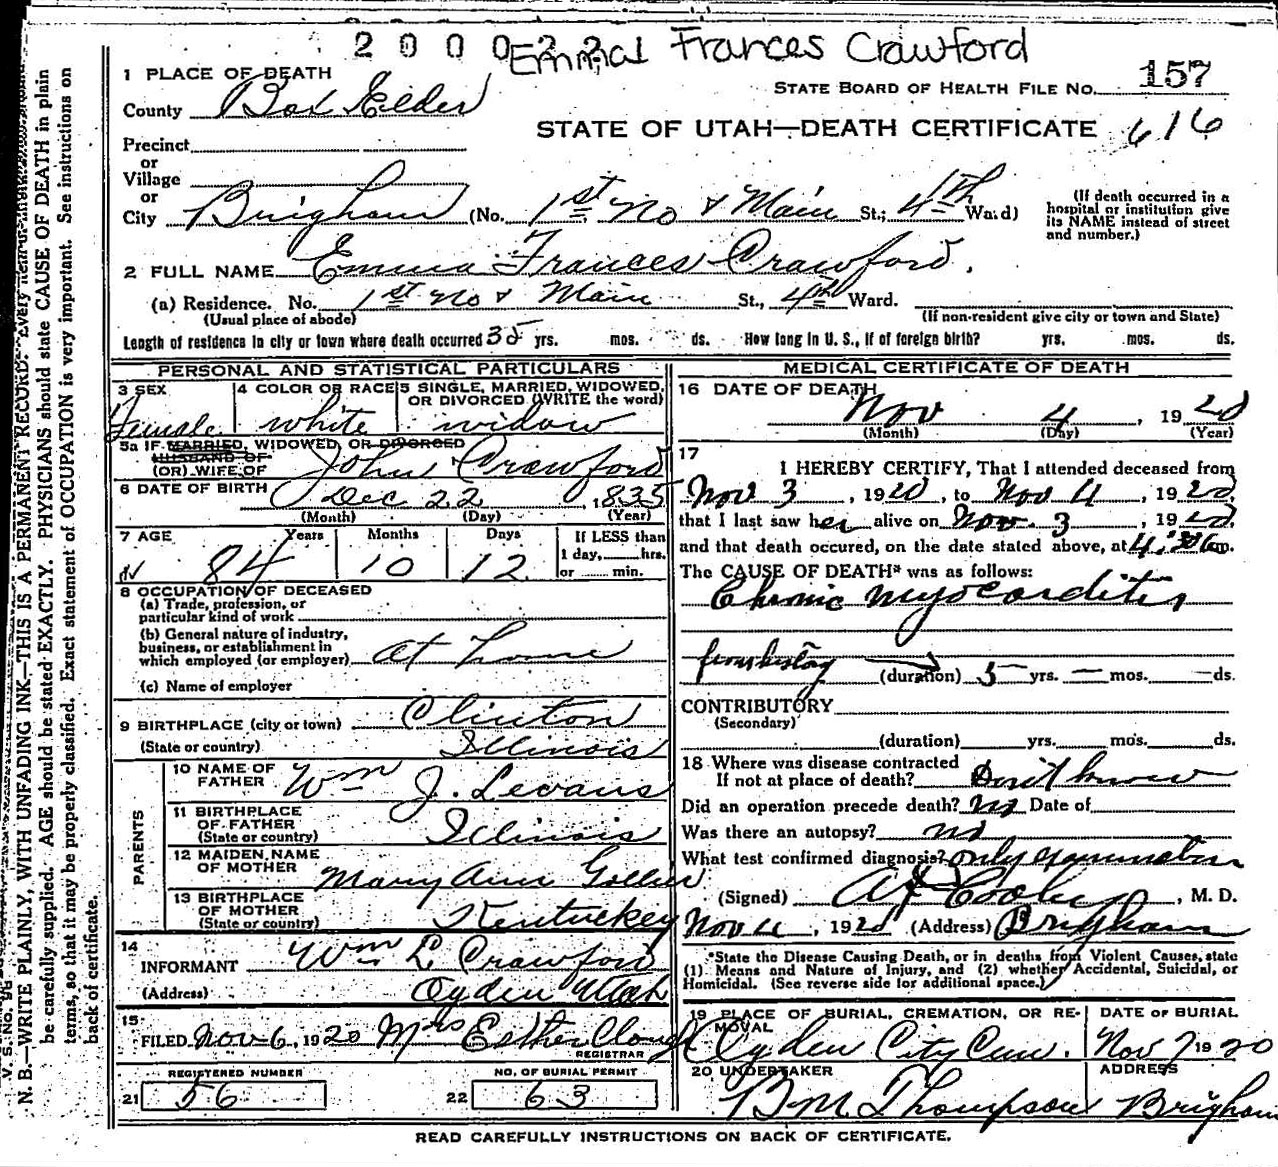 2 0 0 0
Emma Frances Crawford
1 PLACE OF DEATH
County Box Elder
STATE BOARD OF HEALTH FILE NO. 157
STATE OF UTAH—DEATH CERTIFICATE 616
Precinct
or
Village
or
City Brigham (No. 1st No & Main St.; 4th Ward)
(If death occurred in a hospital or institution give its NAME instead of street and number.)
2 FULL NAME Emma Frances Crawford.
(a) Residence. No. 1st No & Main St., 4th Ward.
(Usual place of abode) (If non-resident give city or town and State)
Length of residence in city or town where death occurred 35 yrs. mos. ds. How long in U. S., if of foreign birth? yrs. mos. ds.
PERSONAL AND STATISTICAL PARTICULARS
3 SEX Female
4 COLOR OR RACE white
5 SINGLE, MARRIED, WIDOWED, OR DIVORCED (WRITE the word) widow
5a IF MARRIED, WIDOWED, OR DIVORCED
HUSBAND OF
(OR) WIFE OF John Crawford
6 DATE OF BIRTH Dec 22, 1835
(Month) (Day) (Year)
7 AGE Years Months Days If LESS than
84 10 12 1 day, hrs.
or min.
8 OCCUPATION OF DECEASED
(a) Trade, profession, or
particular kind of work
(b) General nature of industry,
business, or establishment in
which employed (or employer) at home
(c) Name of employer
9 BIRTHPLACE (city or town) Clinton
(State or country) Illinois
PARENTS
10 NAME OF
FATHER Wm J. Levans
11 BIRTHPLACE
OF FATHER
(State or country) Illinois
12 MAIDEN NAME
OF MOTHER Mary Ann
13 BIRTHPLACE
OF MOTHER
(State or country) Kentuckey
14
INFORMANT Wm L Crawford
(Address) Ogden Utah
15
FILED Nov 6, 1920 Mrs Esther Clough
REGISTRAR
REGISTERED NUMBER NO. OF BURIAL PERMIT
21 56 22 63
MEDICAL CERTIFICATE OF DEATH
16 DATE OF DEATH
Nov 4, 1920
(Month) (Day) (Year)
17
I HEREBY CERTIFY, That I attended deceased from
Nov 3, 1920, to Nov 4, 1920,
that I last saw her alive on Nov. 3, 1920,
and that death occured, on the date stated above, at 4:30 m.
The CAUSE OF DEATH* was as follows:
Chronic Myocarditis
from history (duration) 5 yrs. — mos. — ds.
CONTRIBUTORY
(Secondary)
(duration) yrs. mos. ds.
18 Where was disease contracted
If not at place of death? Don't know
Did an operation precede death? no Date of
Was there an autopsy? no
What test confirmed diagnosis? only examination
(Signed) , M. D.
Nov 4, 1920 (Address) Brigham
*State the Disease Causing Death, or in deaths from Violent Causes, state
(1) Means and Nature of Injury, and (2) whether Accidental, Suicidal, or
Homicidal. (See reverse side for additional space.)
19 PLACE OF BURIAL, CREMATION, OR RE- DATE OF BURIAL
MOVAL
Ogden City Cem. Nov 7 1920
20 UNDERTAKER ADDRESS
B M. Thompson Brigham
READ CAREFULLY INSTRUCTIONS ON BACK OF CERTIFICATE.
N. B.—WRITE PLAINLY, WITH UNFADING INK—THIS IS A PERMANENT RECORD.
be carefully supplied. AGE should be stated EXACTLY. PHYSICIANS should state CAUSE OF DEATH in plain
terms, so that it may be properly classified. Exact statement of OCCUPATION is very important. See instructions on
back of certificate.